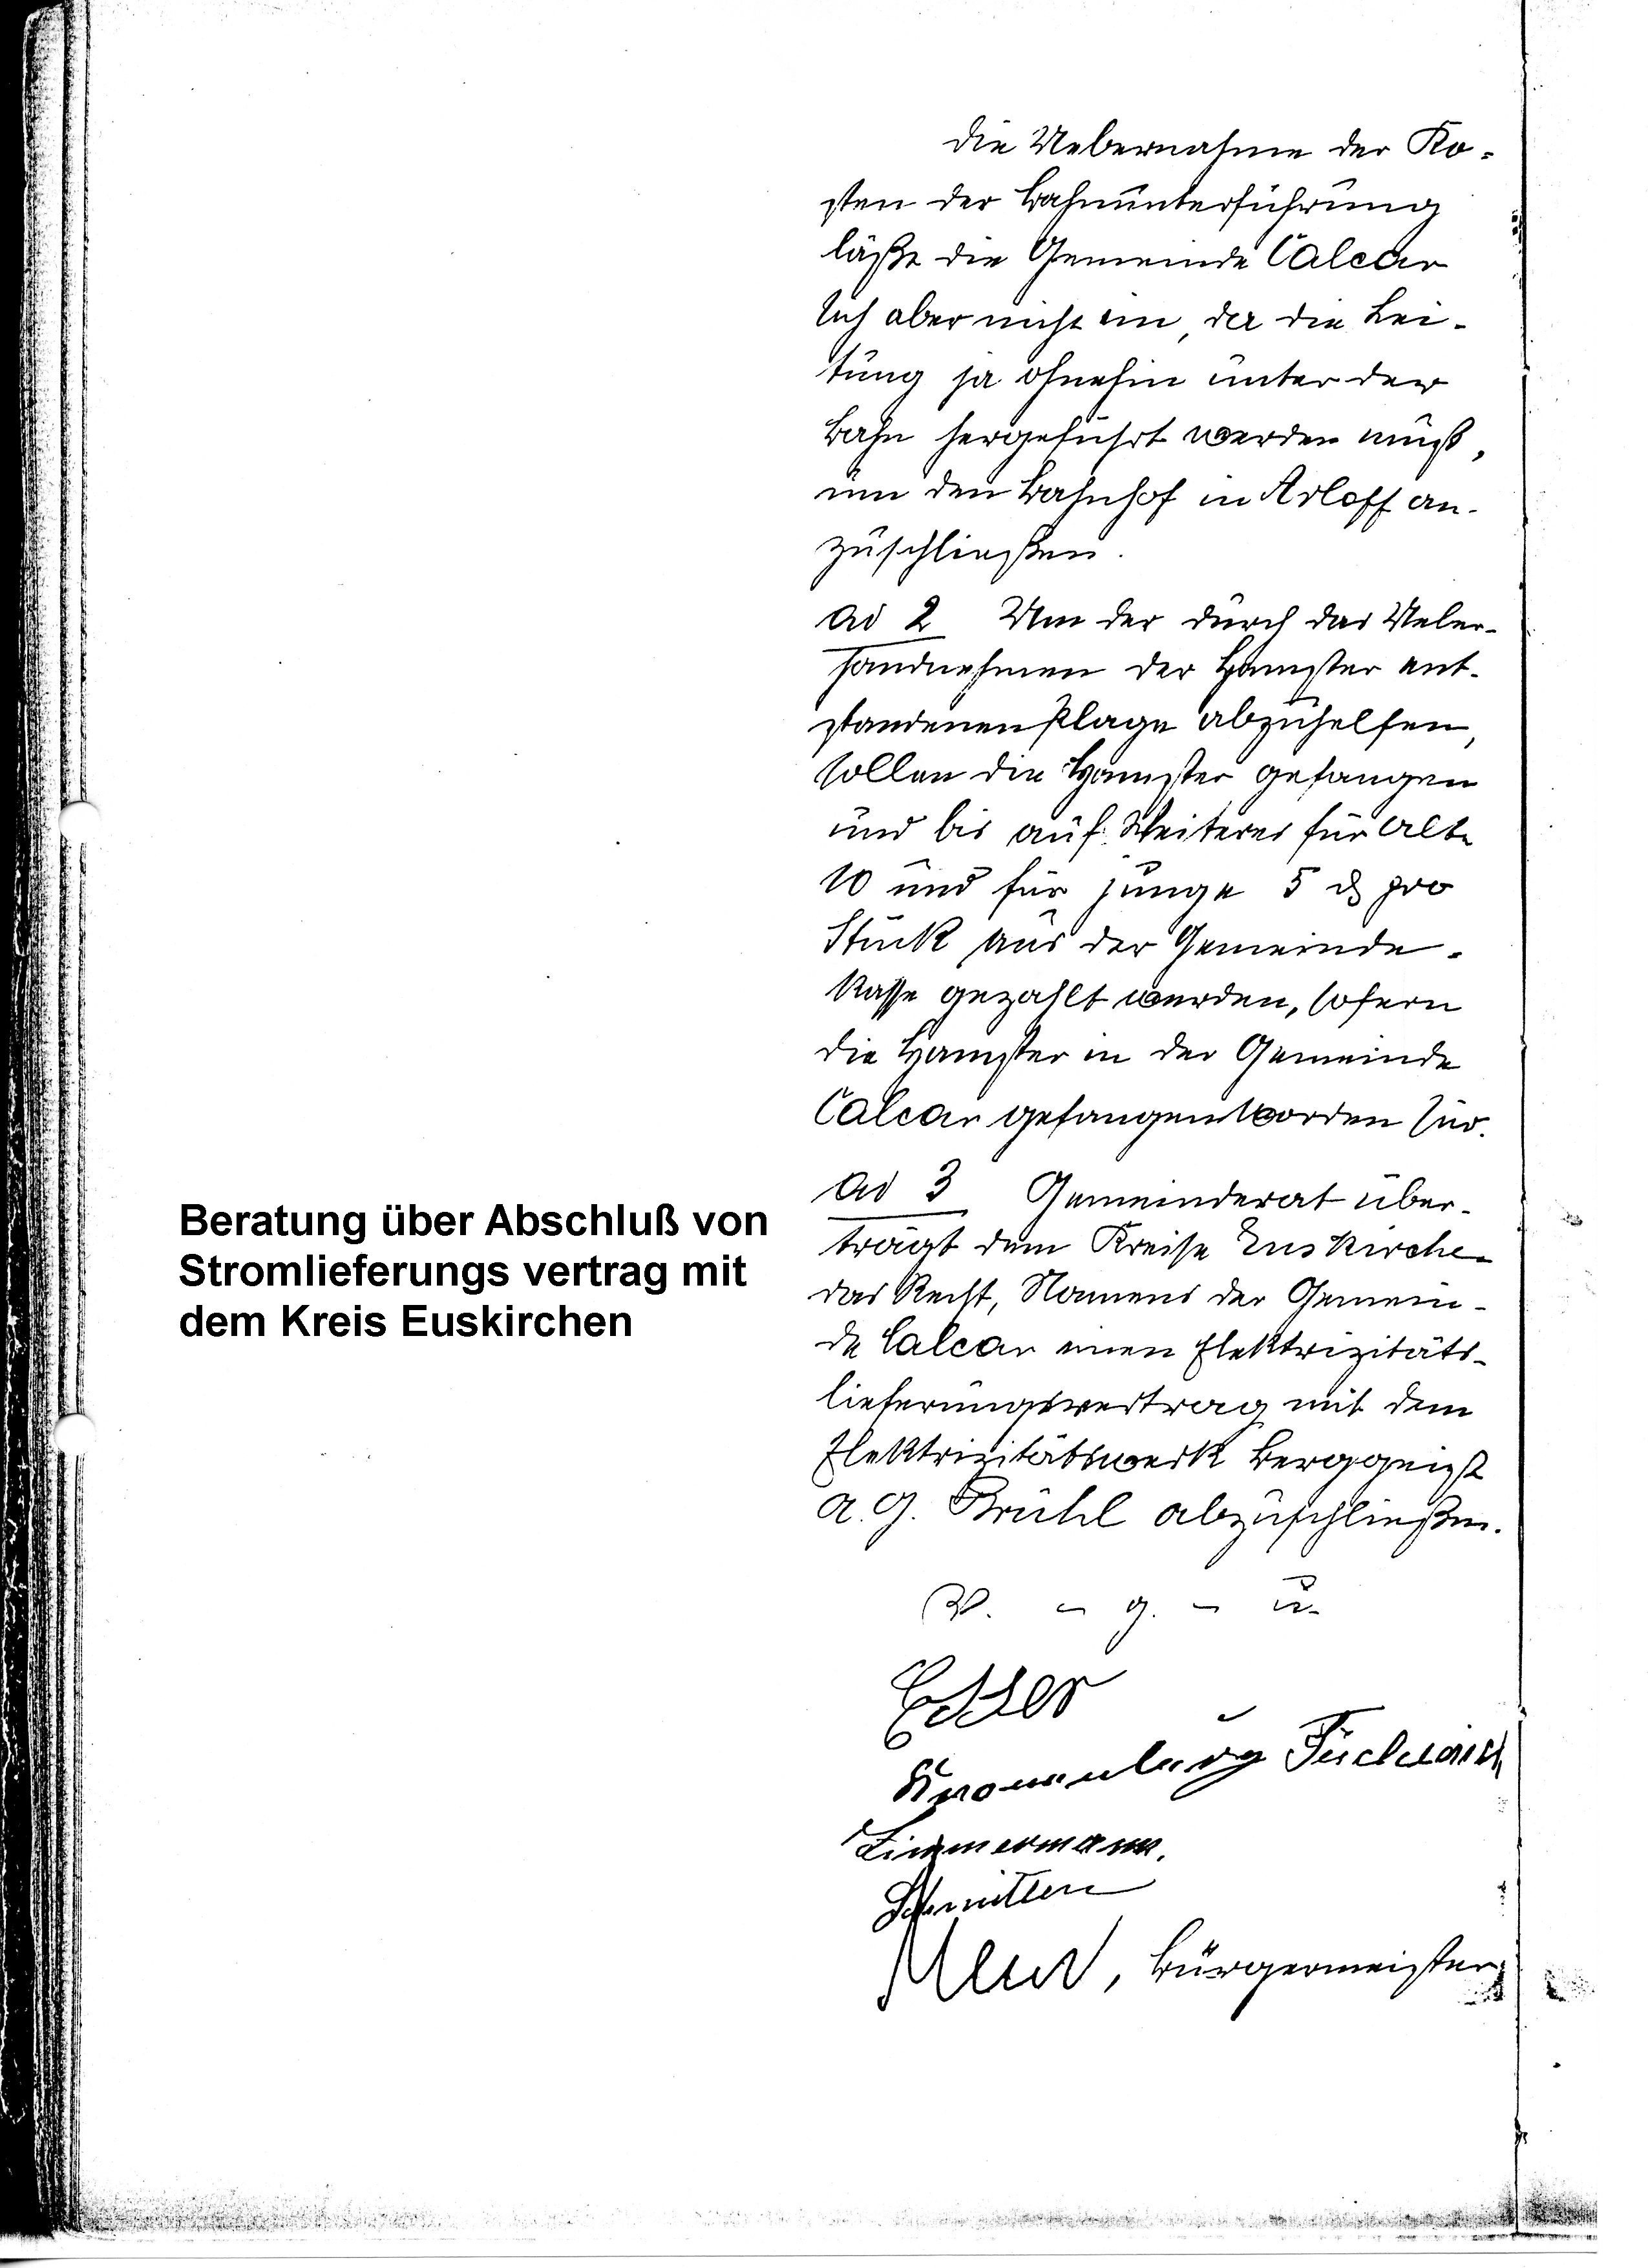 die Uebernahme der Ko-
sten der Bahnunterführung
läßt die Gemeinde Calcar
sich aber nicht ein, da die Lei-
tung ja ohnehin unter der
Bahn hergeführt werden muß,
um den Bahnhof in Arloff an-
zuschließen.
Ad 2 Um der durch das Ueber-
handnehmen der Hamster ent-
standenen Plage abzuhelfen,
sollen die Hamster gefangen
und bis auf Weiteres für alte
10 und für junge 5 ₰ pro
Stück aus der Gemeinde-
kasse gezahlt werden, sofern
die Hamster in der Gemeinde
Calcar gefangen worden sind.
Beratung über Abschluß von
Stromlieferungs vertrag mit
dem Kreis Euskirchen
Ad 3 Gemeinderat über-
trägt dem Kreise Euskirchen
das Recht, Namens der Gemein-
de Calcar einen Elektrizitäts-
lieferungsvertrag mit dem
Elektrizitätswerk Berggeist
A.G. Brühl abzuschließen.
V. - g. - u.
Esser
Kronenburg
Zimmermann.
Schmitten
, Bürgermeister